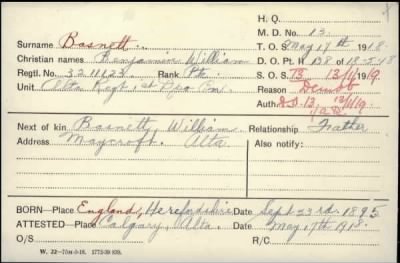 H. Q.
M. D. No. 13.
Surname Basnett.
T. O. S. May 17th 1918.
Christian names Benjamin William
D. O. Pt. II 138 of 18-5-18
Regtl. No. 3211123. Rank Pte.
S. O. S. 13 13/1/19.
Unit Alta Regt 1st Dpo Bn.
Reason Demob
Auth. D.O. 13, 13/1/19
Next of kin Basnett, William
Relationship Father
Address Maycroft. Alta.
Also notify:
BORN—Place England, Herefordshire Date Sept 23rd. 1895
ATTESTED—Place Calgary, Alta. Date May 17th 1918.
O/S
R/C